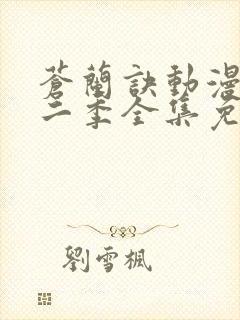 蒼蘭訣動漫
二季全集免
劉雪楓